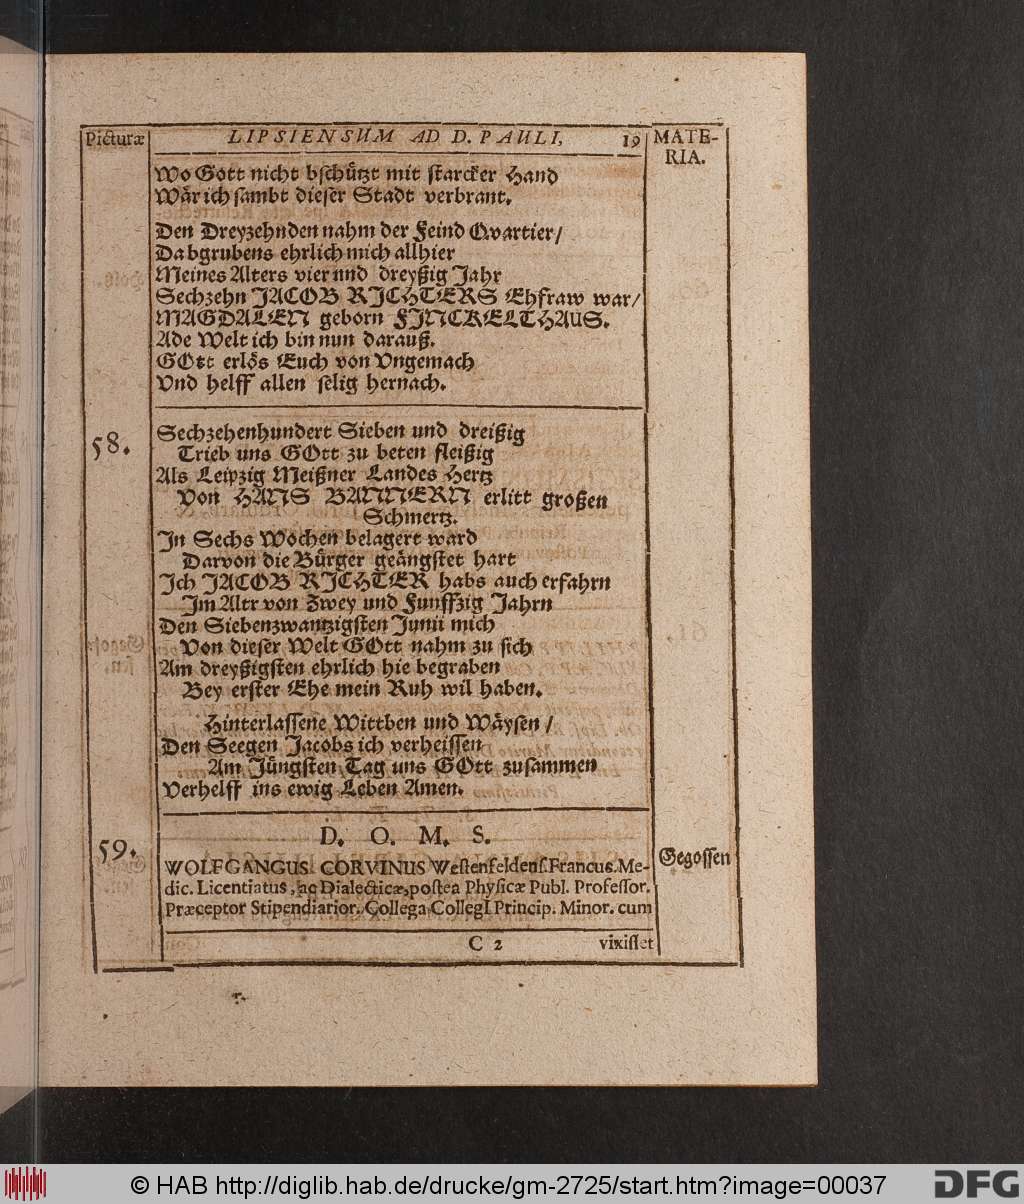 Picturæ
LIPSIENSUM AD D. PAULI,
19
MATE-
RIA.
Wo Gott nicht bschützt mit starcker Hand
Wär ich sambt dieser Stadt verbrant.
Den Dreyzehnden nahm der Feind Qvartier/
Da bgrubens ehrlich mich allhier
Meines Alters vier und dreyßig Jahr
Sechzehn JACOB RICHTERS Ehfraw war/
MAGDALEN geborn FINCKELTHAUS.
Ade Welt ich bin nun darauß.
GOtt erlös Euch von Vngemach
Vnd helff allen selig hernach.
58.
Sechzehenhundert Sieben und dreißig
Trieb uns GOtt zu beten fleißig
Als Leipzig Meißner Landes Hertz
Von HANS BANNERN erlitt großen
Schmertz.
In Sechs Wochen belagert ward
Darvon die Bürger geängstet hart
Ich JACOB RICHTER habs auch erfahrn
Im Altr von Zwey und Funffzig Jahrn
Den Siebenzwantzigsten Junii mich
Von dieser Welt GOtt nahm zu sich
Am dreyßigsten ehrlich hie begraben
Bey erster Ehe mein Ruh wil haben.
Hinterlassene Wittben und Wäysen /
Den Seegen Jacobs ich verheissen
Am Jüngsten Tag uns GOtt zusammen
Verhelff ins ewig Leben Amen.
59.
D. O. M. S.
WOLFGANGUS CORVINUS Westenfeldens. Francus. Me-
dic. Licentiatus, ac Dialecticæ, postea Physicæ Publ. Professor.
Præceptor Stipendiarior. Collega CollegI Princip. Minor. cum
Gegossen
C 2
vixisset
© HAB http://diglib.hab.de/drucke/gm-2725/start.htm?image=00037
DFG